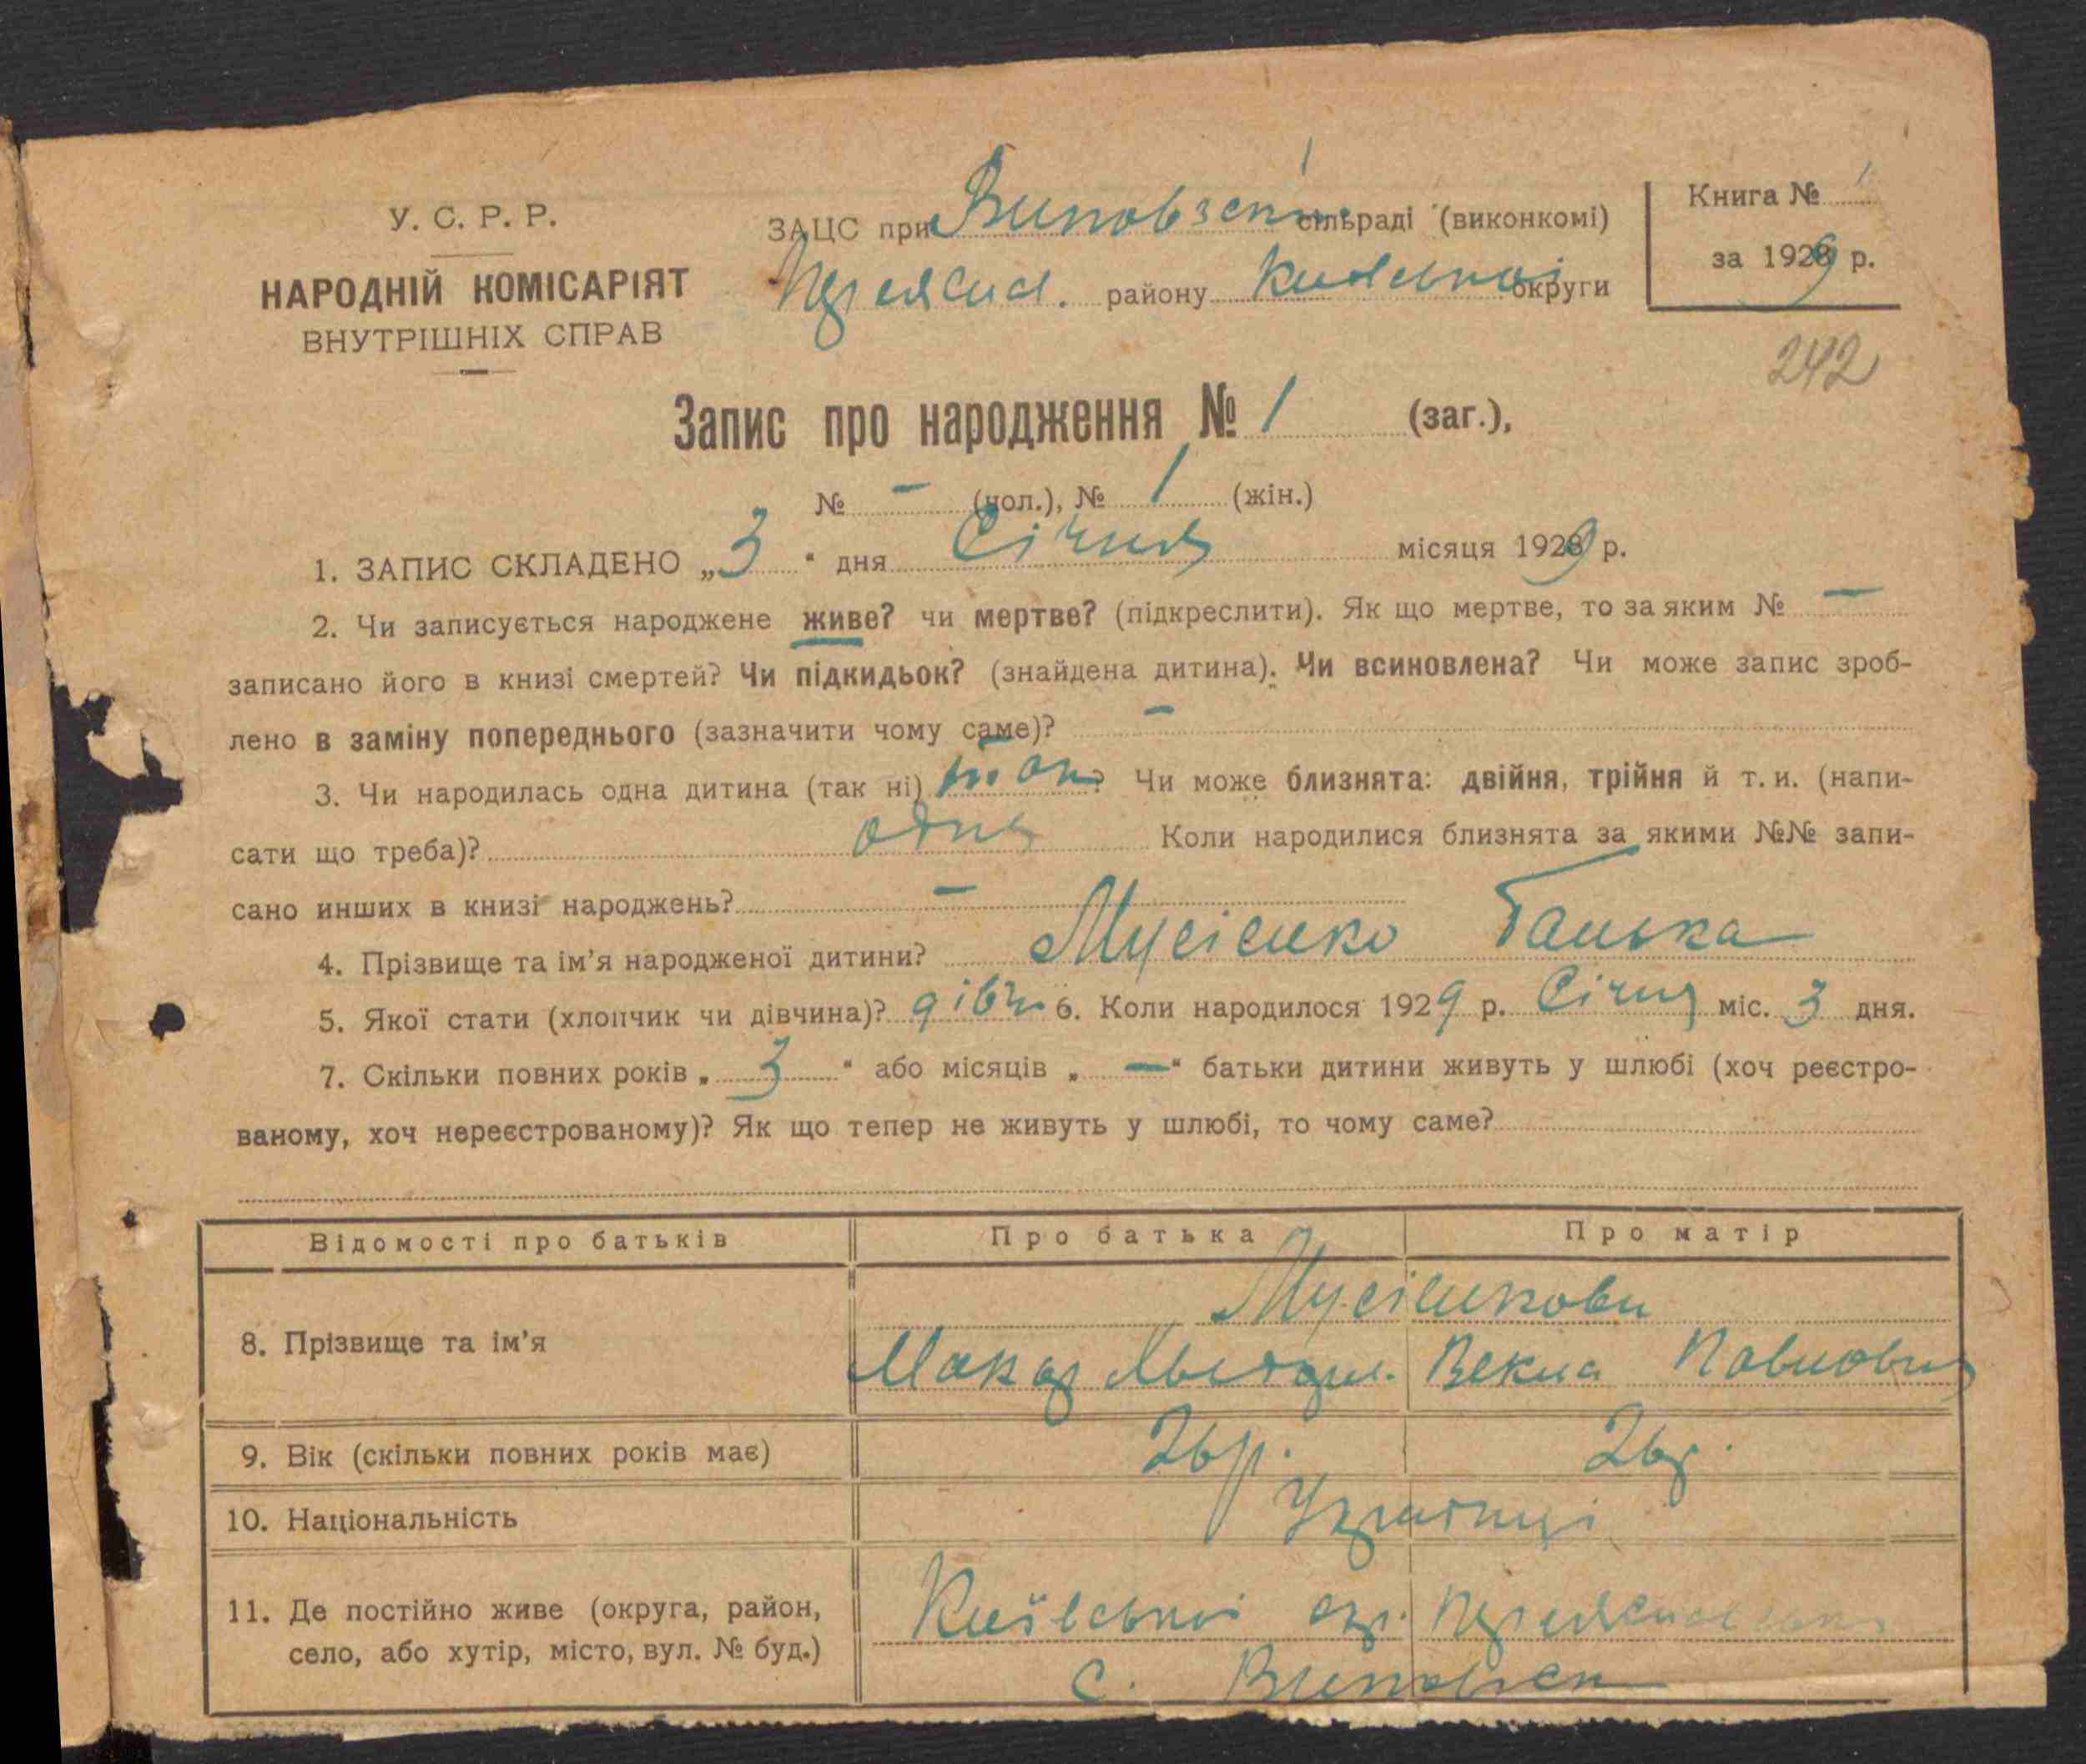 У. С. Р. Р.
НАРОДНІЙ КОМІСАРІЯТ
ВНУТРІШНІХ СПРАВ
ЗАЦС при сільраді (виконкомі)
Переяслав. району Київської округи
Книга № 1
за 1929 р.
242
Запис про народження № 1 (заг.),
№ — (чол.), № 1 (жін.)
1. ЗАПИС СКЛАДЕНО „3“ дня Січня місяця 1929 р.
2. Чи записується народжене живе? чи мертве? (підкреслити). Як що мертве, то за яким № —
записано його в книзі смертей? Чи підкидьок? (знайдена дитина). Чи всиновлена? Чи може запис зроб-
лено в заміну попереднього (зазначити чому саме)? —
3. Чи народилась одна дитина (так ні) так? Чи може близнята: двійня, трійня й т. и. (напи-
сати що треба)? одна Коли народилися близнята за якими №№ запи-
сано инших в книзі народжень? —
4. Прізвище та ім’я народженої дитини? Мусієнко Ганька
5. Якої стати (хлопчик чи дівчина)? дівч. 6. Коли народилося 1929 р. Січня міс. 3 дня.
7. Скільки повних років „3“ або місяців „—“ батьки дитини живуть у шлюбі (хоч реєстро-
ваному, хоч нереєстрованому)? Як що тепер не живуть у шлюбі, то чому саме?
Відомості про батьків Про батька Про матір
Мусієнкови
8. Прізвище та ім’я
Макар Векла Павловна
9. Вік (скільки повних років має) 26 р. 26 р.
10. Національність Українці
11. Де постійно живе (округа, район, Київської окр. Переяславськ.
село, або хутір, місто, вул. № буд.)
с.